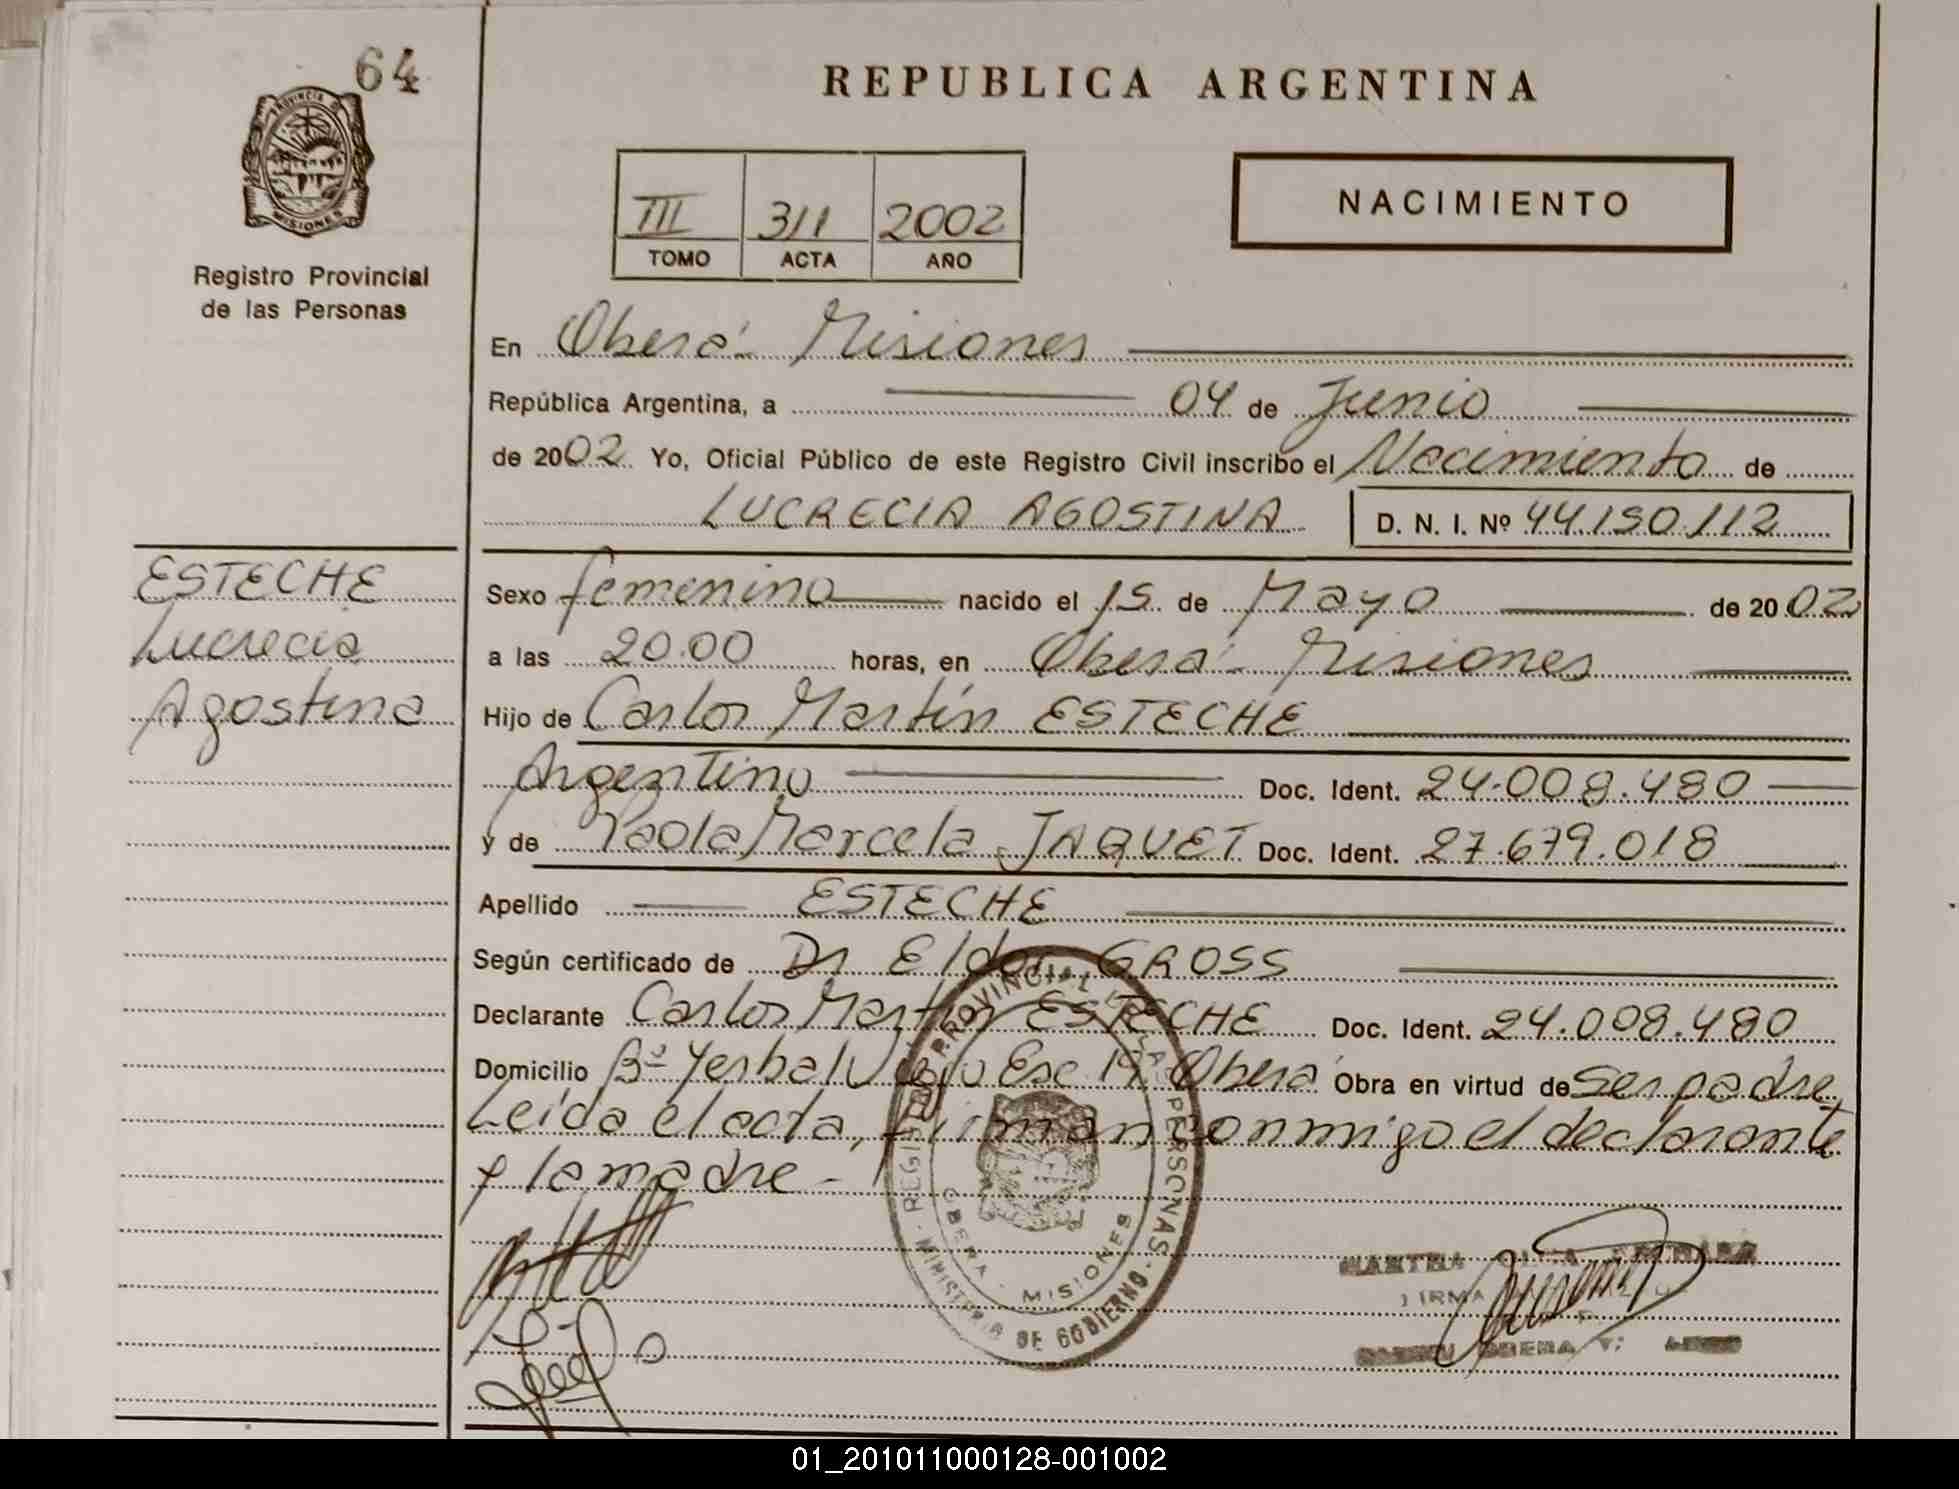 64
PROVINCIA DE
MISIONES
Registro Provincial
de las Personas
REPUBLICA ARGENTINA
III 311 2002
TOMO ACTA AÑO
NACIMIENTO
En Oberá Misiones
República Argentina, a 04 de Junio
de 2002 Yo, Oficial Público de este Registro Civil inscribo el Nacimiento de
LUCRECIA AGOSTINA D. N. I. Nº 44.150.112
ESTECHE
Lucrecia
Agostina
Sexo femenino nacido el 15 de Mayo de 2002
a las 20.00 horas, en Oberá - Misiones
Hijo de Carlos Martín ESTECHE
Argentino Doc. Ident. 24.008.480
y de Paola Marcela JAQUET Doc. Ident. 27.679.018
Apellido ESTECHE
Según certificado de Dr Eldor GROSS
Declarante Carlos Martín ESTECHE Doc. Ident. 24.008.480
Domicilio Bº Yerbal Oberá Obra en virtud de Ser padre
Leída el acta, firman conmigo el declarante
y la madre -
REGISTRO PROVINCIAL DE LAS PERSONAS
OBERA - MISIONES
MINISTERIO DE GOBIERNO
MARTHA
OBERA
01_201011000128-001002